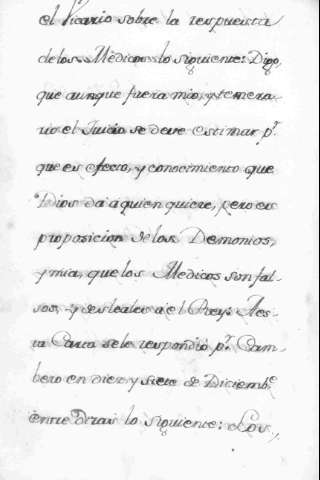 el Vicario sobre la respuesta
de los Médicos lo siguiente: Digo,
que aunque fuera mio, y temera-
rio el Juicio se deve estimar pr.
que es efecto, y conocimiento que
Dios da a quien quiere, pero es
proposicion de los Demonios,
y mia, que los Medicos son fal-
sos, y desleales a el Rey: Aes-
ta Carta se le respondió pr. Cam-
bero en diez y siete de Diciembe.
entre otras lo siguiente: Los,